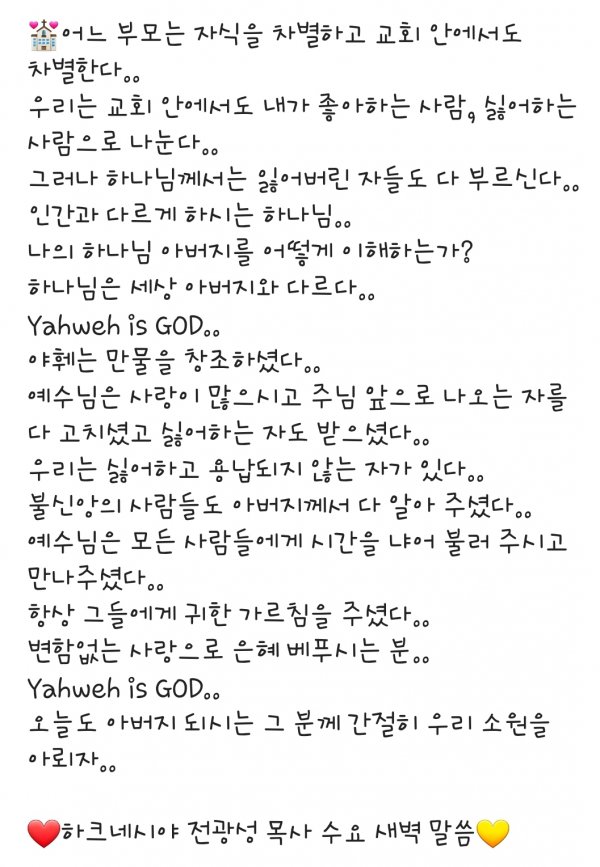 💒어느 부모는 자식을 차별하고 교회 안에서도
차별한다。。
우리는 교회 안에서도 내가 좋아하는 사람, 싫어하는
사람으로 나눈다。。
그러나 하나님께서는 잃어버린 자들도 다 부르신다。。
인간과 다르게 하시는 하나님。。
나의 하나님 아버지를 어떻게 이해하는가?
하나님은 세상 아버지와 다르다。。
Yahweh is GOD。。
야훼는 만물을 창조하셨다。。
예수님은 사랑이 많으시고 주님 앞으로 나오는 자를
다 고치셨고 싫어하는 자도 받으셨다。。
우리는 싫어하고 용납되지 않는 자가 있다。。
불신앙의 사람들도 아버지께서 다 알아 주셨다。。
예수님은 모든 사람들에게 시간을 냐어 불러 주시고
만나주셨다。。
항상 그들에게 귀한 가르침을 주셨다。。
변함없는 사랑으로 은혜 베푸시는 분。。
Yahweh is GOD。。
오늘도 아버지 되시는 그 분께 간절히 우리 소원을
아뢰자。。
❤️하크네시야 전광성 목사 수요 새벽 말씀💛